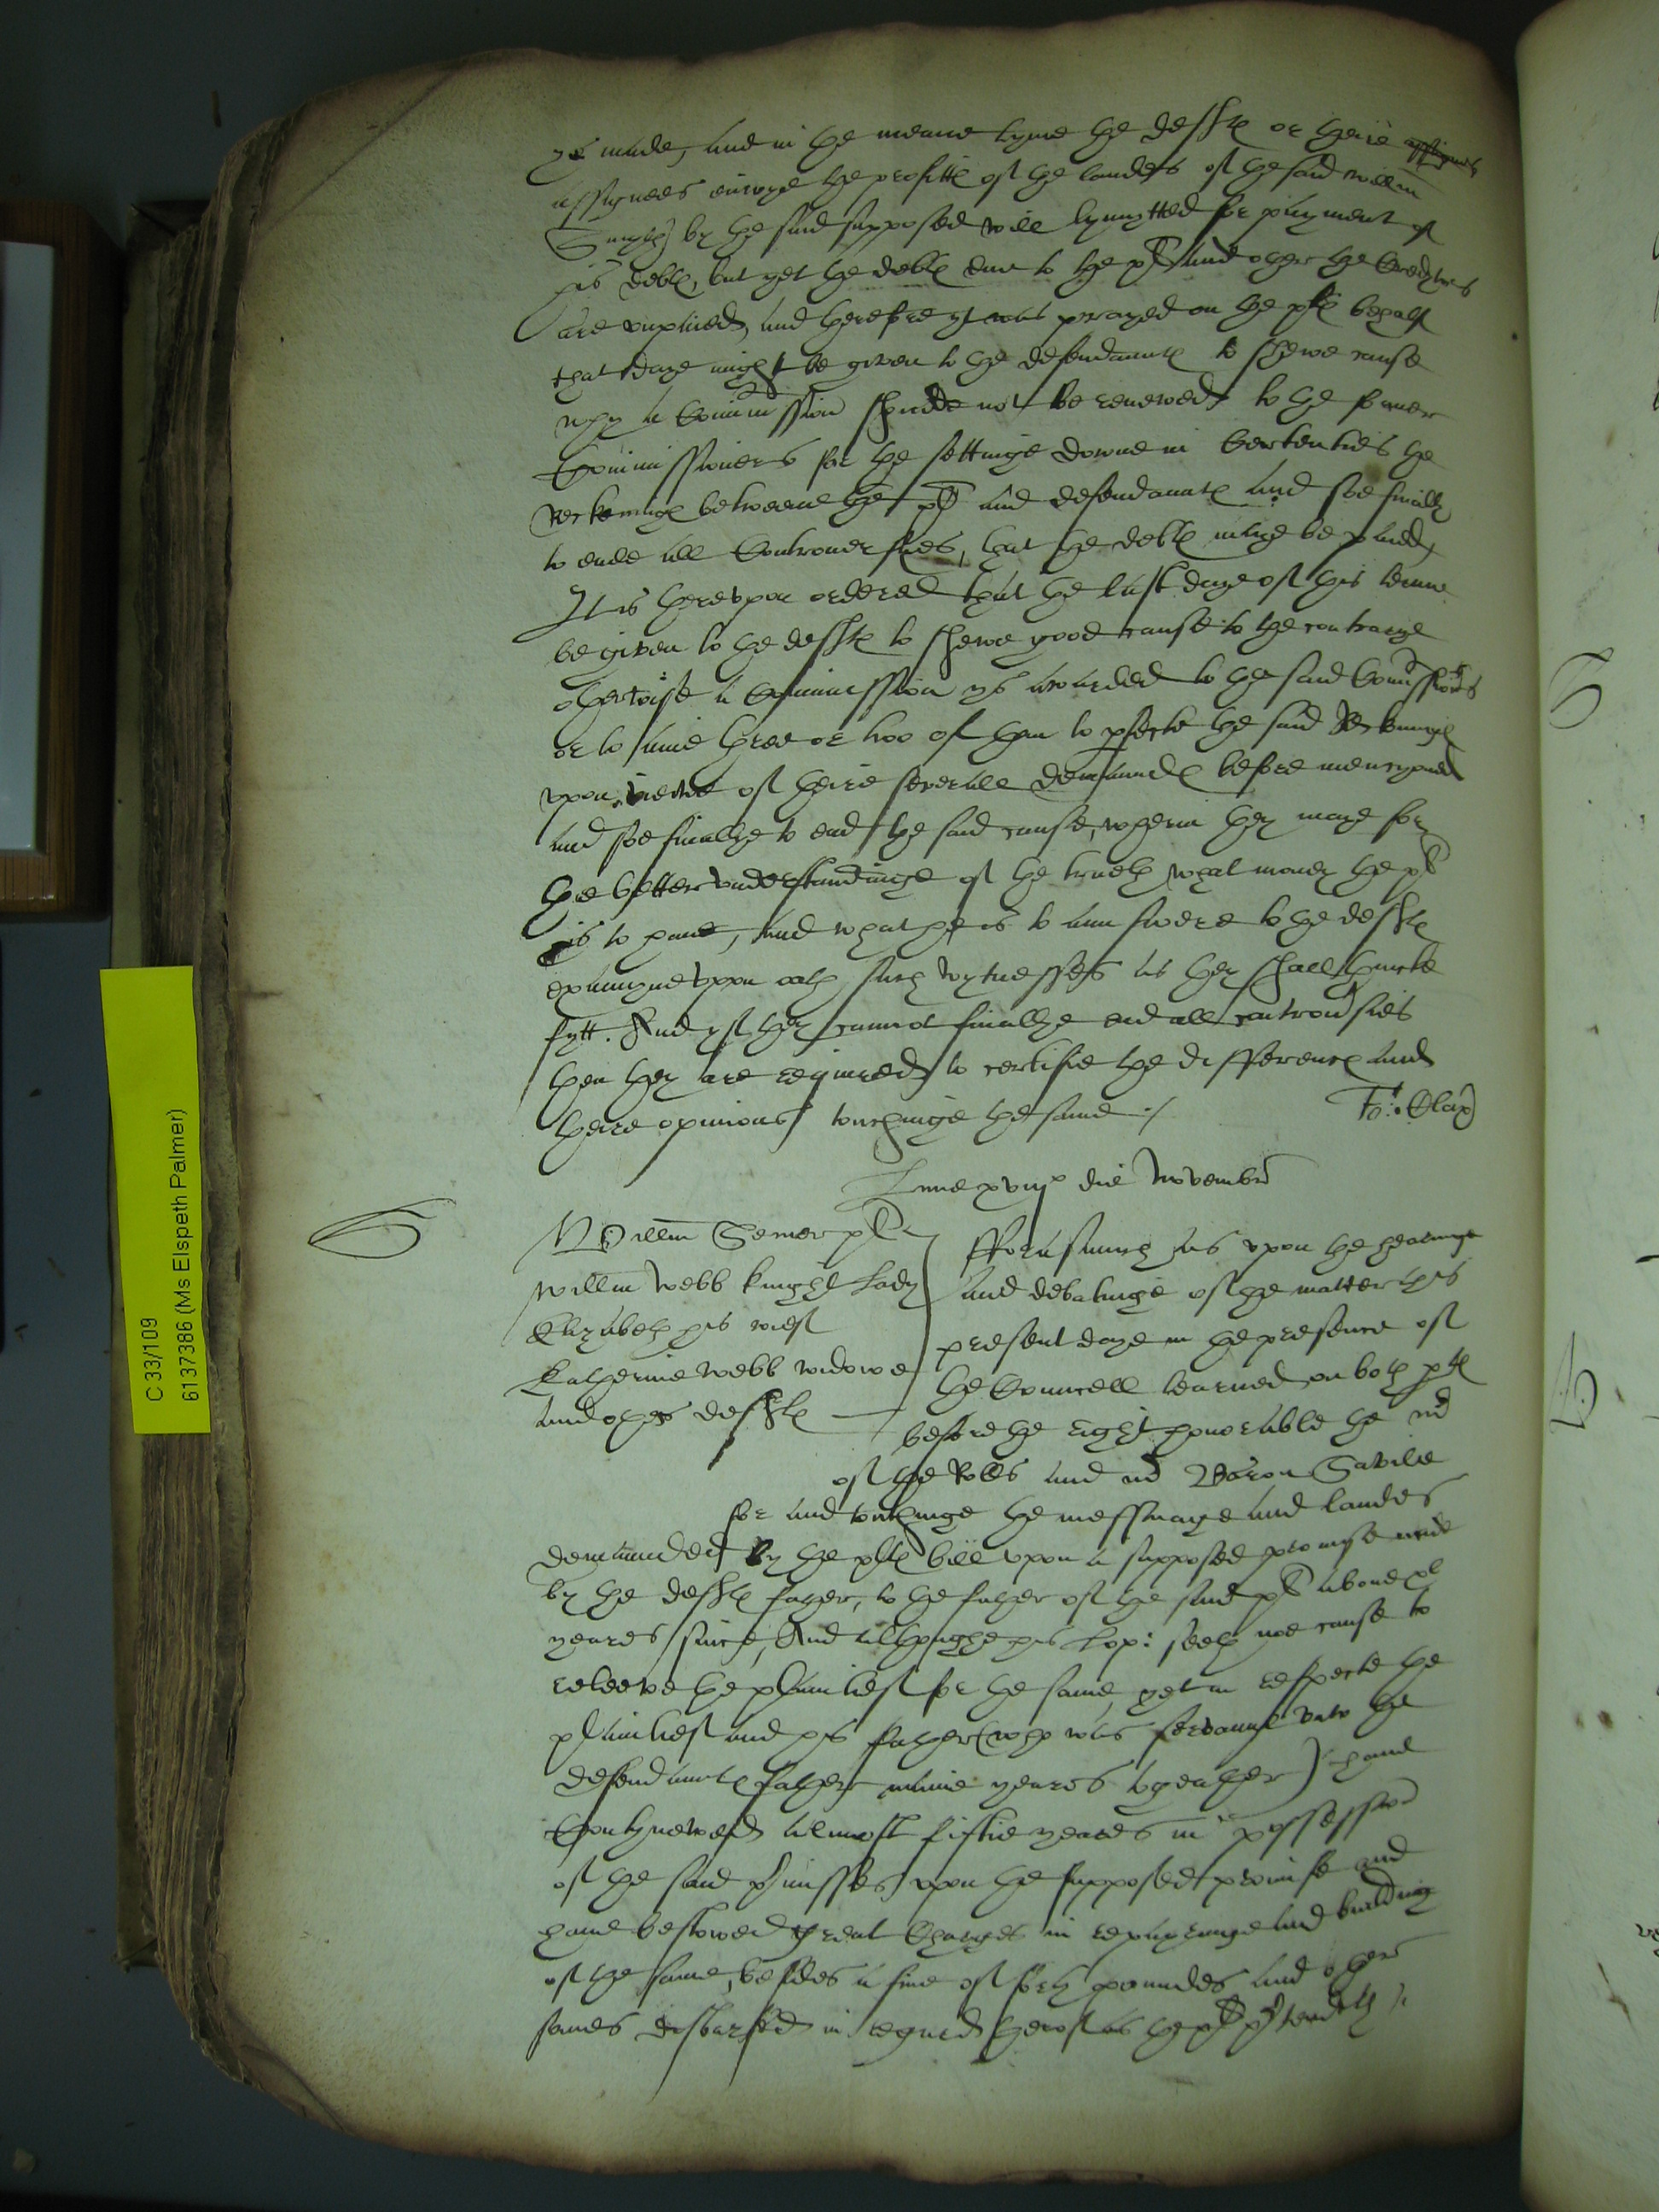 ys made, and in the meane tyme the defts or theire assignes
assignees enioye the profitts of the landes of the said willm
by the said supposed will lymytted for payment of
his debts, but yet the debts due to the plt and other the Creditors
are vnpaied, and therefore yt was prayed on the plts behalf
that daye might be given to the defendaunts to shewe cause
why a Commission should not be renewed to the former
Commissioners for the settinge downe in Certenties the
Reckonings betweene the plt and defendaunts and soe finally
to ende all Controuersies, that the debts maye be paid,
It is therevpon ordered that the last daye of this terme
be given to the defts to shewe good cause to the contrarye
otherwise a Commission ys awarded to the said Comissioners
or to anie three or two of them to pfecte the said Reckonings
vpon viewe of theire severall demaunds before mencyoned
and soe finallye to end the said cause, wherin they maye for
the better vnderstandinge of the trueth what money the plt
is to haue, and what he is to aunswere to the defts
examyne vpon oath such wytnesses as they shall thincke
fytt. And yf they cannot finallye end all controusies
then they are required to certifie the difference and
theire opinions touchinge the same ./ Fr: Clap
Lune xviijo die Novembr
Willm Semer plt
Willm Webb knight Lady
Elizabeth his wief
Katherine Webb widowe
and others defts
fforasmuch as vpon the hearinge
and debatinge of the matter this
present daye in the presence of
the Councell learned on both pts
before the right honorable the mr
of the Rolls and mr Baron Savile
for and touchinge the messuage and landes
demaunded by the plts bill vpon a supposed promyse made
by the defts father, to the father of the said plt aboue xl
yeares since, And althoughe his Lop: seeth noe cause to
releeve the plaintief for the same, yet in respecte the
plaintief and his father (who was servaunt vnto the
defendaunts father manie yeares togeather) haue
Contynewed almost fiftie yeares in possession
of the said pmisses vpon the supposed promise and
haue bestowed great Charges in repayringe and buildinge
of the same, besides a fine of forty poundes and other
somes disbursed in regard therof as the plt ptendeth
C 33/109
6137386 (Ms Elspeth Palmer)